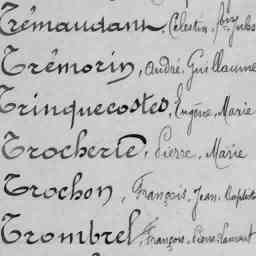 Trémaudant, Célestin, Jules
Trémorin, André, Guillaume
Trinquecostes, Eugène, Marie
Trocherie, Pierre, Marie
Trochon, François, Jean, Baptiste
Trombrel, François, Pierre, Laurent